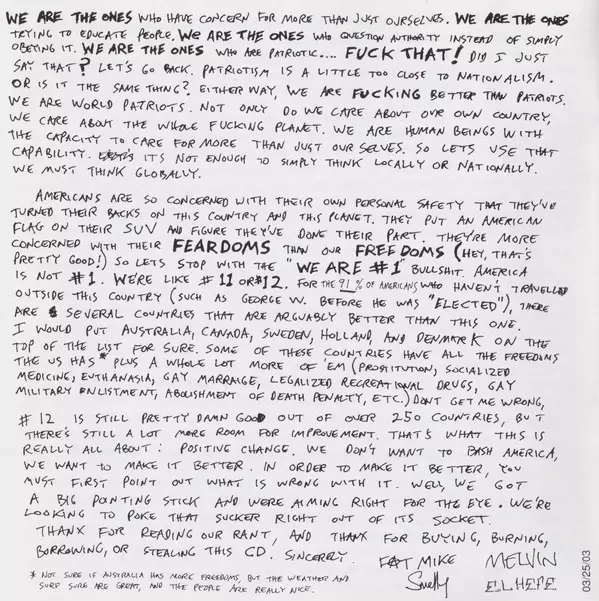 WE ARE THE ONES WHO HAVE CONCERN FOR MORE THAN JUST OURSELVES. WE ARE THE ONES
TRYING TO EDUCATE PEOPLE. WE ARE THE ONES WHO QUESTION AUTHORITY INSTEAD OF SIMPLY
OBEYING IT. WE ARE THE ONES WHO ARE PATRIOTIC.... FUCK THAT! DID I JUST
SAY THAT? LET'S GO BACK. PATRIOTISM IS A LITTLE TOO CLOSE TO NATIONALISM.
OR IS IT THE SAME THING? EITHER WAY, WE ARE FUCKING BETTER THAN PATRIOTS.
WE ARE WORLD PATRIOTS. NOT ONLY DO WE CARE ABOUT OUR OWN COUNTRY,
WE CARE ABOUT THE WHOLE FUCKING PLANET. WE ARE HUMAN BEINGS WITH
THE CAPACITY TO CARE FOR MORE THAN JUST OUR SELVES. SO LETS USE THAT
CAPABILITY. ITS NOT ENOUGH TO SIMPLY THINK LOCALLY OR NATIONALLY.
WE MUST THINK GLOBALLY.
AMERICANS ARE SO CONCERNED WITH THEIR OWN PERSONAL SAFETY THAT THEY'VE
TURNED THEIR BACKS ON THIS COUNTRY AND THIS PLANET. THEY PUT AN AMERICAN
FLAG ON THEIR SUV AND FIGURE THEY'VE DONE THEIR PART. THEY'RE MORE
CONCERNED WITH THEIR FEARDOMS THAN OUR FREEDOMS (HEY, THAT'S
PRETTY GOOD!) SO LETS STOP WITH THE "WE ARE #1" BULLSHIT. AMERICA
IS NOT #1. WE'RE LIKE #11 OR #12. FOR THE 91% OF AMERICANS WHO HAVEN'T TRAVELLED
OUTSIDE THIS COUNTRY (SUCH AS GEORGE W. BEFORE HE WAS "ELECTED"), THERE
ARE SEVERAL COUNTRIES THAT ARE ARGUABLY BETTER THAN THIS ONE.
I WOULD PUT AUSTRALIA, CANADA, SWEDEN, HOLLAND, AND DENMARK ON THE
TOP OF THE LIST FOR SURE. SOME OF THESE COUNTRIES HAVE ALL THE FREEDOMS
THE US HAS* PLUS A WHOLE LOT MORE OF 'EM (PROSTITUTION, SOCIALIZED
MEDICINE, EUTHANASIA, GAY MARRAIGE, LEGALIZED RECREATIONAL DRUGS, GAY
MILITARY ENLISTMENT, ABOLISHMENT OF DEATH PENALTY, ETC.) DONT GET ME WRONG,
#12 IS STILL PRETTY DAMN GOOD OUT OF OVER 250 COUNTRIES, BUT
THERE'S STILL A LOT MORE ROOM FOR IMPROVEMENT. THAT'S WHAT THIS IS
REALLY ALL ABOUT: POSITIVE CHANGE. WE DON'T WANT TO BASH AMERICA,
WE WANT TO MAKE IT BETTER. IN ORDER TO MAKE IT BETTER, YOU
MUST FIRST POINT OUT WHAT IS WRONG WITH IT. WELL, WE GOT
A BIG POINTING STICK AND WERE AIMING RIGHT FOR THE EYE. WE'RE
LOOKING TO POKE THAT SUCKER RIGHT OUT OF ITS SOCKET.
THANX FOR READING OUR RANT, AND THANX FOR BUYING, BURNING,
BORROWING, OR STEALING THIS CD. SINCERELY. FAT MIKE MELVIN
Smelly EL HEFE
* NOT SURE IF AUSTRALIA HAS MORE FREEDOMS, BUT THE WEATHER AND
SURF SURE ARE GREAT, AND THE PEOPLE ARE REALLY NICE.
03/25/03